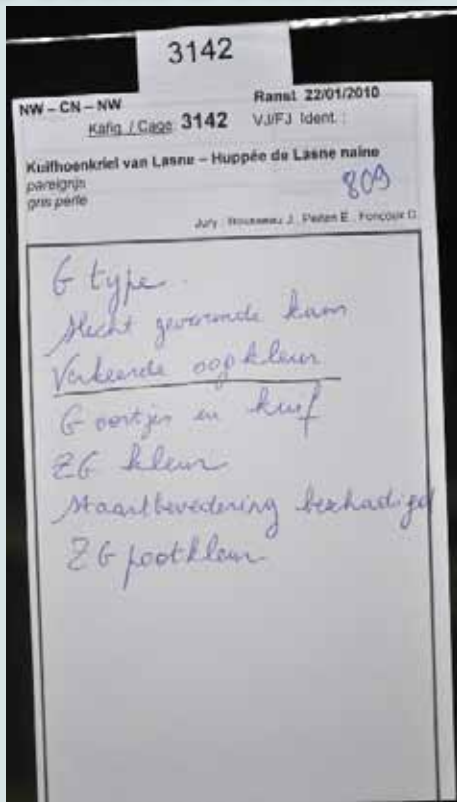 3142
NW – CN – NW
Ranst 22/01/2010
Kafig / Cage 3142 VJ/FJ Ident. :
Kuifhoenkriel van Lasne – Huppée de Lasne naine
parelgrijs
gris perle
809
Jury : Rousseau J., Peiten E., Foncoux D.
G type.
Slecht gevormde kam
Verkeerde oogkleur
G oortjes en kuif
ZG kleur
Staartbevedering beschadigd
ZG pootkleur